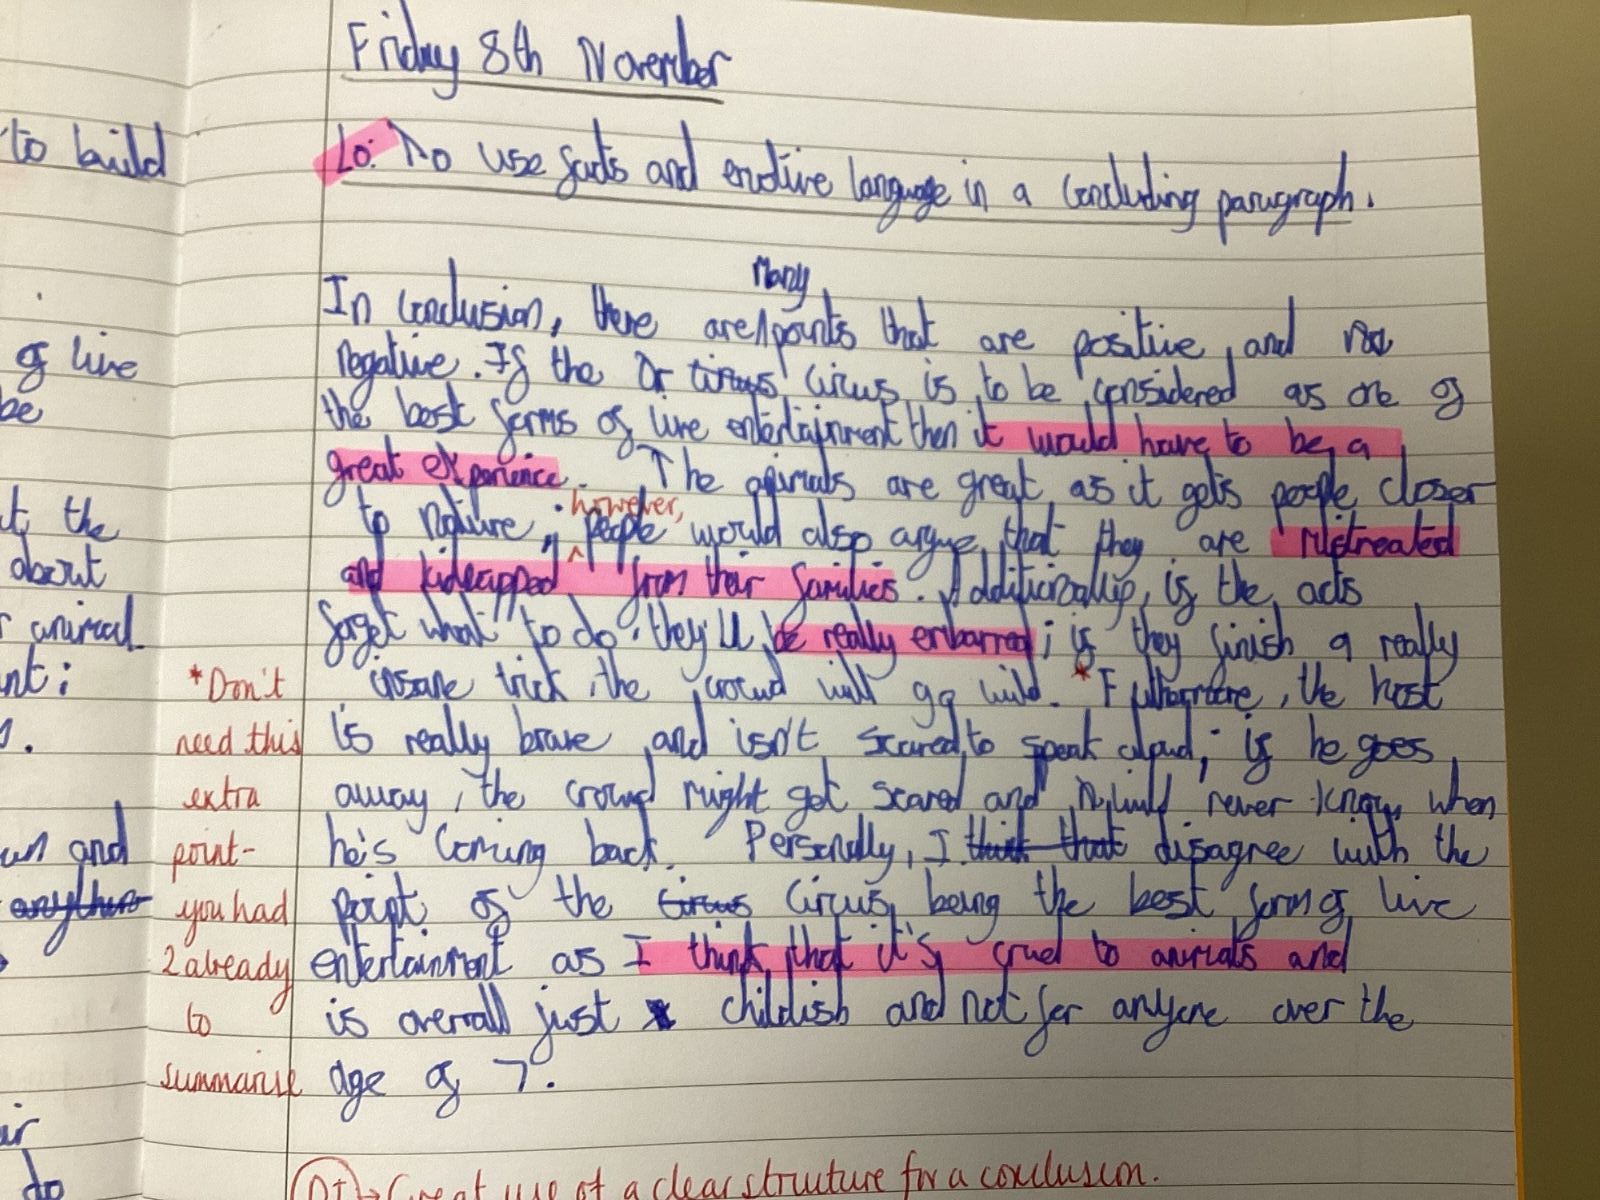 Friday 8th November
to build
Lo: To use facts and emotive language in a concluding paragraph.
Many
In conclusion, there are points that are positive, and
of live
negative. If the circus circus is to be considered as one of
be
the best forms of live entertainment then it would have to be a
great experience. The animals are great as it gets people closer
however,
t, the
to nature; people would also argue that they are mistreated
about
and kidnapped from their families. Additionally, if the acts
animal
forget what to do, they'll be really embarred; if they finish a really
nt:
*Don't
insane trick, the crowd will go wild. *Futhermore, the host
s.
need this
is really brave and isn't scared to speak aloud; if he goes
extra
away, the crowd might get scared and will never know when
un and
point-
he's coming back. Personally, I think that disagree with the
anything
you had
point of the circus circus being the best form of live
2 already
entertainment as I think that it's cruel to animals and
to
is overall just childish and not for anyone over the
summarise
age of 7.
ir
do
→ Great use of a clear structure for a conclusion.